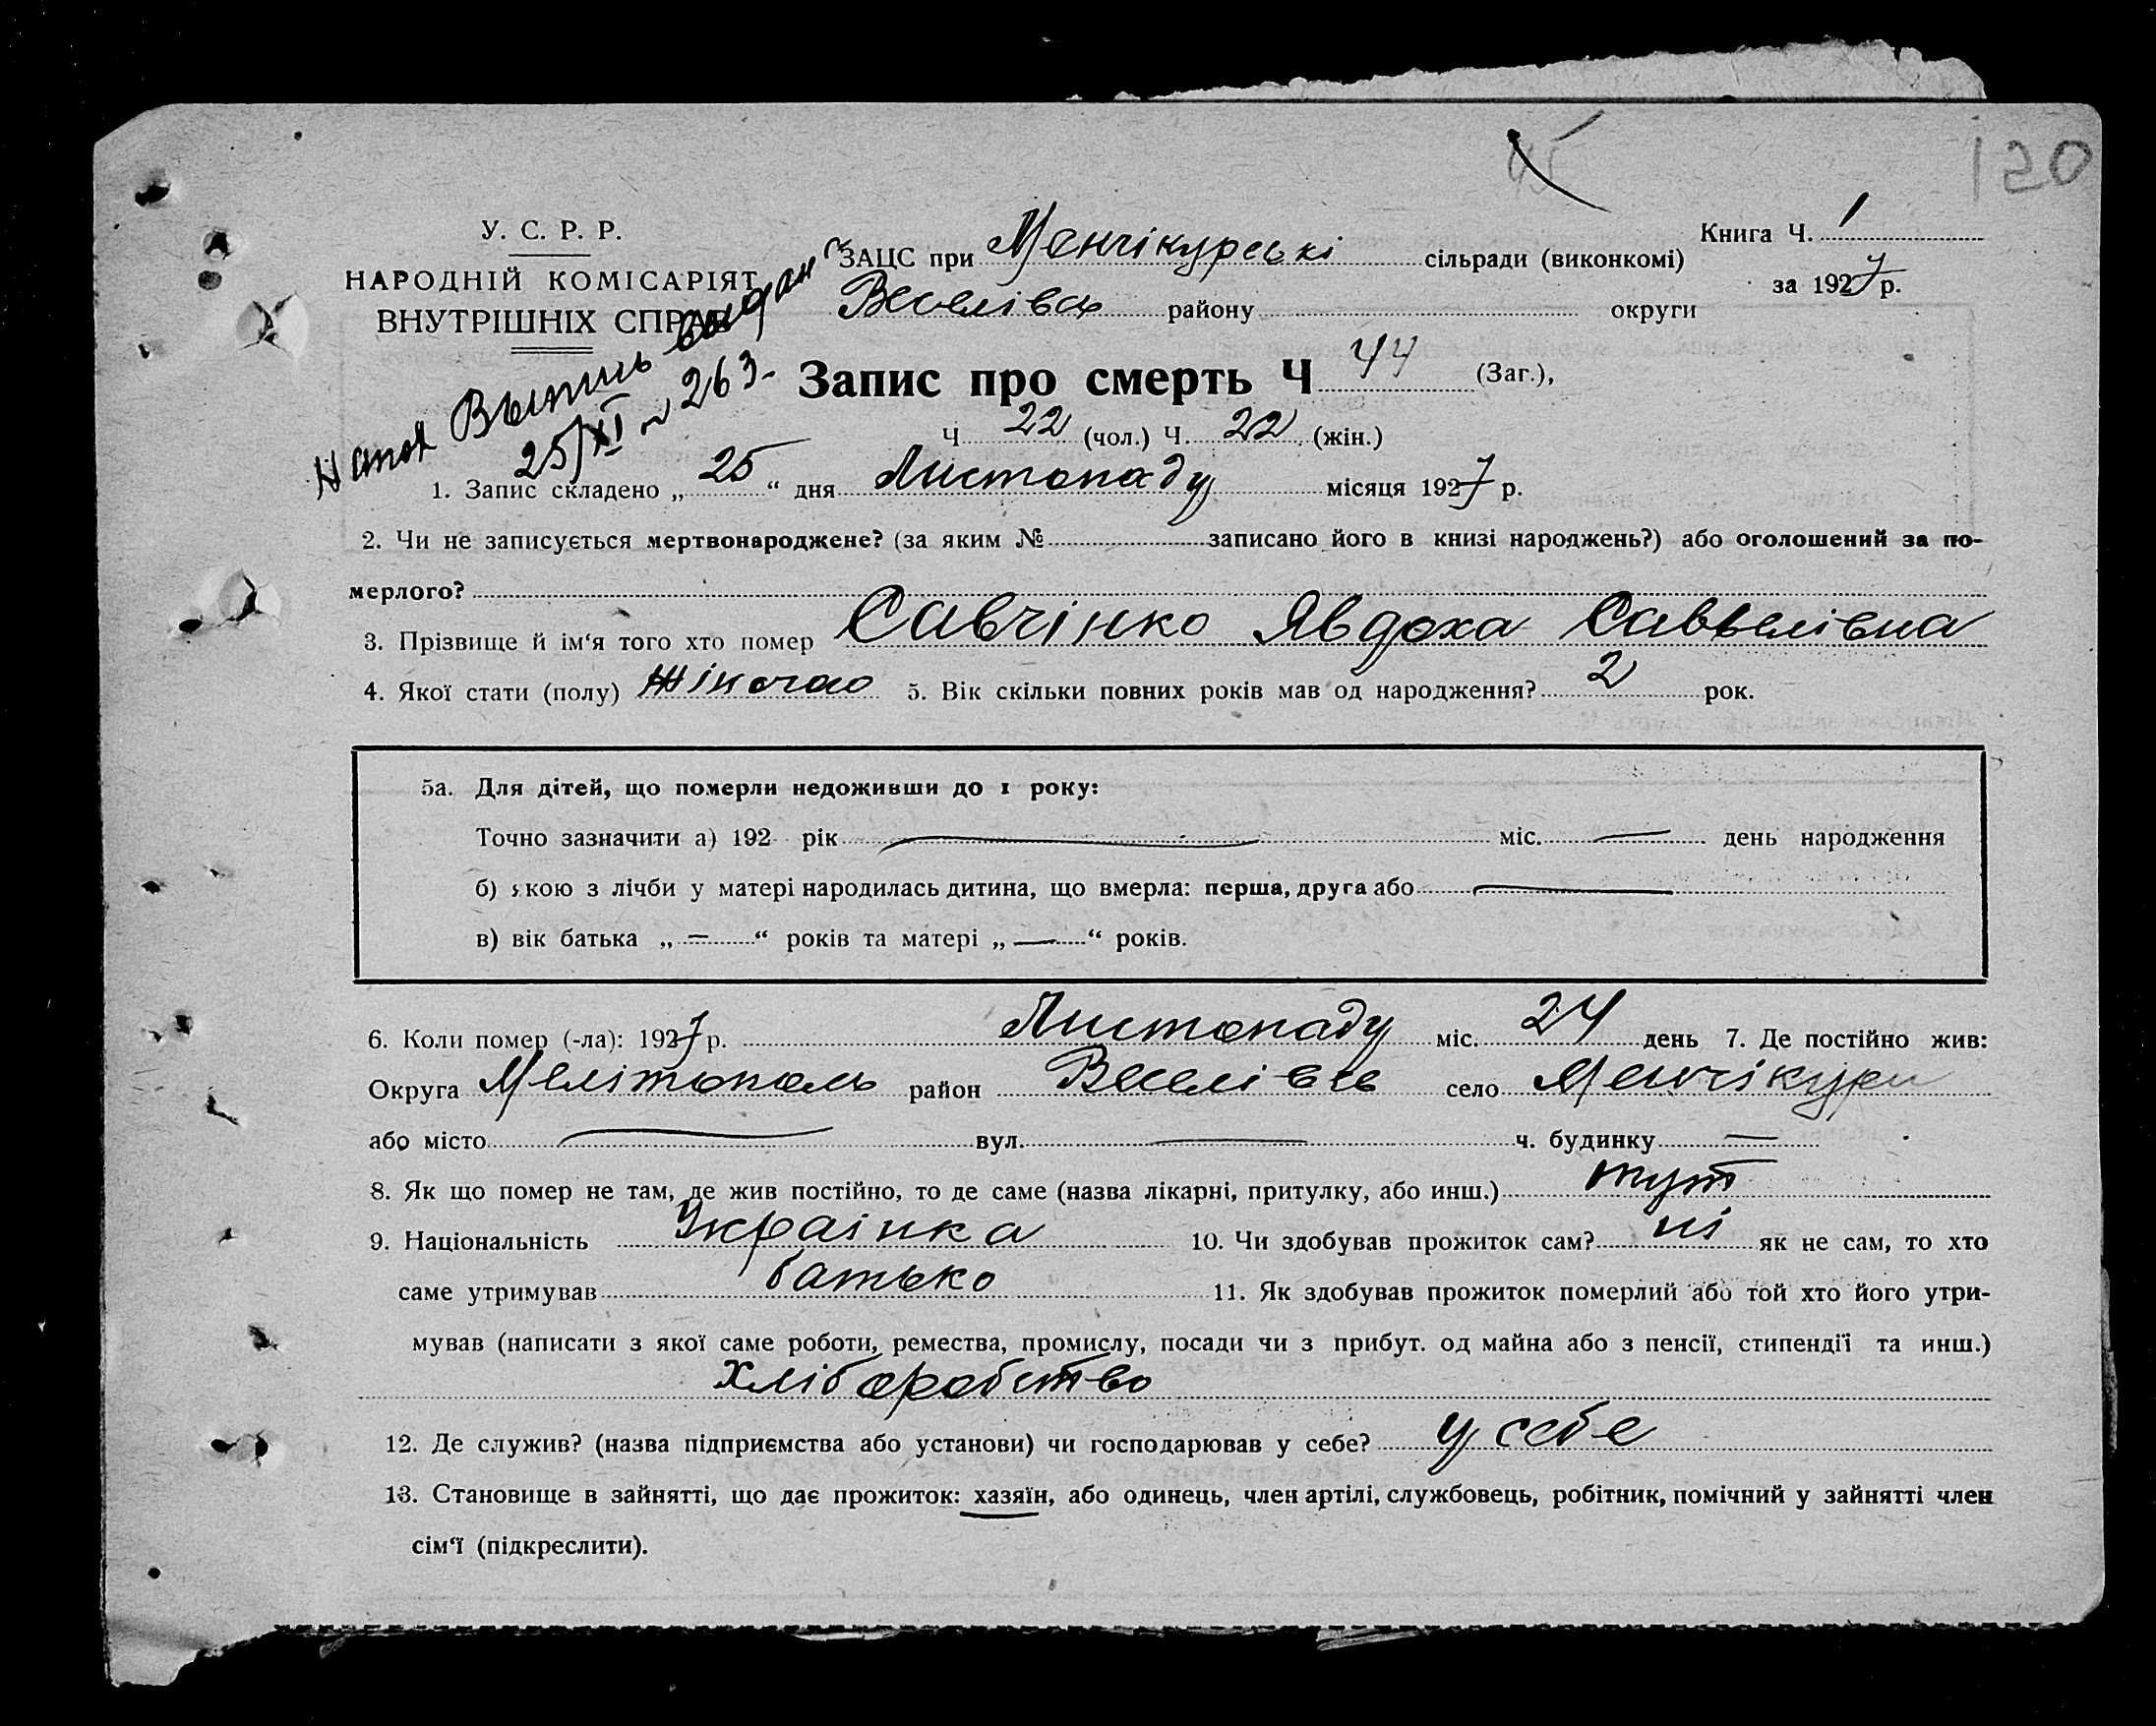 120
У. С. Р. Р.
НАРОДНІЙ КОМІСАРІЯТ
ВНУТРІШНІХ СПРАВ
Выпись выдана
25/XI № 263-
ЗАЦС при Менчікурські сільради (виконкомі)
Книга Ч. 1
за 1927 р.
Веселівсь району округи
Запис про смерть Ч 44 (Заг.),
Ч 22 (чол.) Ч. 22 (жін.)
1. Запис складено „ 25 “ дня Листопаду місяця 1927 р.
2. Чи не записується мертвонароджене? (за яким № записано його в книзі народжень?) або оголошений за по-
мерлого?
3. Прізвище й ім‘я того хто помер Савчінко Явдоха Саввелівна
4. Якої стати (полу) Жіночао 5. Вік скільки повних років мав од народження? 2 рок.
5а. Для дітей, що померли недоживши до 1 року:
Точно зазначити а) 192 рік — міс. — день народження
б) якою з лічби у матері народилась дитина, що вмерла: перша, друга або —
в) вік батька „ — “ років та матері „ — “ років.
6. Коли помер (-ла): 1927 р. Листопаду міс. 24 день 7. Де постійно жив:
Округа Мелітополь район Веселівсь село Менчікури
або місто — вул. — ч. будинку —
8. Як що помер не там, де жив постійно, то де саме (назва лікарні, притулку, або инш.) тут
9. Національність Українка 10. Чи здобував прожиток сам? ні як не сам, то хто
саме утримував батько 11. Як здобував прожиток померлий або той хто його утри-
мував (написати з якої саме роботи, ремества, промислу, посади чи з прибут. од майна або з пенсії, стипендії та инш.)
хліборобство
12. Де служив? (назва підприємства або установи) чи господарював у себе? у себе
13. Становище в зайнятті, що дає прожиток: хазяїн, або одинець, член артілі, службовець, робітник, помічний у зайнятті член
сім‘ї (підкреслити).